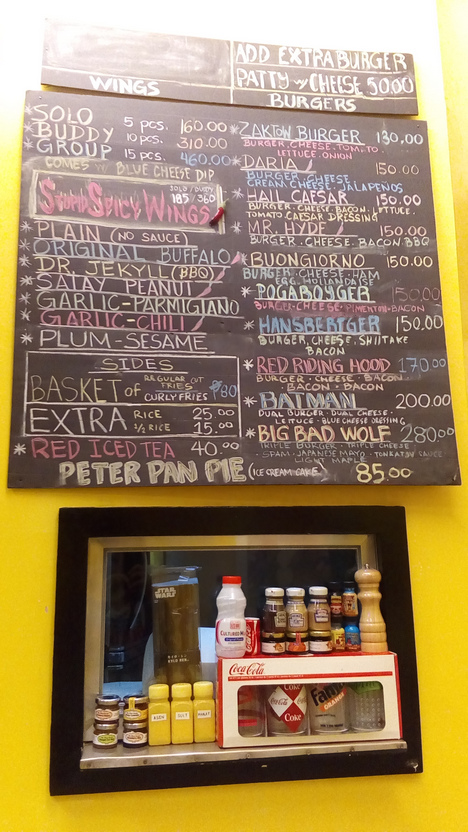 ADD EXTRA BURGER
PATTY w/ CHEESE 50.00
WINGS
BURGERS
* SOLO 5 pcs. 160.00
BUDDY 10 pcs. 310.00
* GROUP 15 pcs. 460.00
COMES w/ BLUE CHEESE DIP
STUPID SPICY WINGS SOLO / BUDDY 185 / 360
* PLAIN (NO SAUCE)
* ORIGINAL BUFFALO
* DR. JEKYLL (BBQ)
* SATAY PEANUT
* GARLIC-PARMIGIANO
* GARLIC-CHILI
* PLUM-SESAME
SIDES
BASKET of REGULAR CUT FRIES CURLY FRIES 80
EXTRA RICE 25.00
1/2 RICE 15.00
* RED ICED TEA 40.00
PETER PAN PIE (ICE CREAM CAKE) 85.00
* ZAKTOW BURGER 130.00
BURGER, CHEESE, TOMATO,
LETTUCE, ONION
* DARIA 150.00
BURGER, CHEESE
CREAM CHEESE, JALAPEÑOS
HAIL CAESAR 150.00
BURGER, CHEESE, BACON, LETTUCE,
TOMATO, CAESAR DRESSING
* MR. HYDE 150.00
BURGER, CHEESE, BACON, BBQ
* BUONGIORNO 150.00
BURGER, CHEESE, HAM
EGG, HOLLANDAISE
* POGABOYGER 150.00
BURGER-CHEESE-PIMENTO-BACON
* HANSBERTGER 150.00
BURGER, CHEESE, SHIITAKE
BACON
* RED RIDING HOOD 170.00
BURGER - CHEESE - BACON
BACON - BACON
* BATMAN 200.00
DUAL BURGER - DUAL CHEESE -
LETTUCE - BLUE CHEESE DRESSING
* BIG BAD WOLF 280.00
TRIPLE BURGER - TRIPLE CHEESE -
SPAM - JAPANESE MAYO - TONKATSU SAUCE
LIGHT MAPLE
STAR
WARS
CULTURED MI
Coca-Cola
Coke
Coke
Fanta
ORANGE